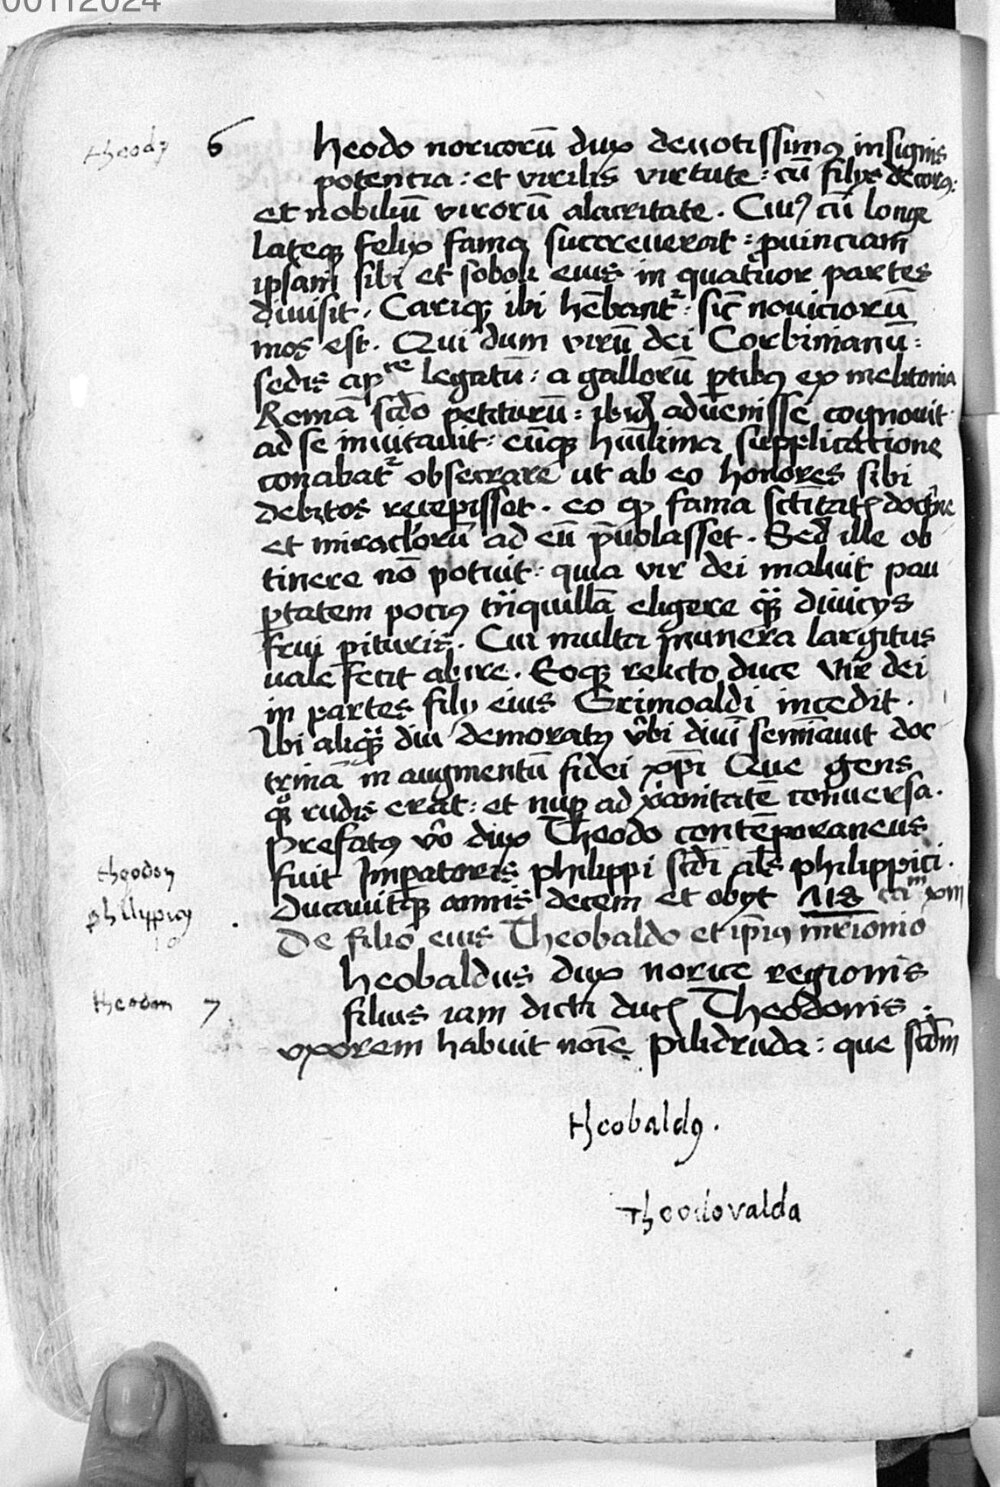 00112024
theodo 6 heodo noricorū dux deuotissimꝰ insignis
potencia : et virilis virtute : cū filijs decorꝰ :
et nobiliū virorū alacritate . Cuiꝰ cū longe
lateqꝫ felix fama succreuerat : ꝓuinciam
ipsam sibi et soboli eius in quatuor partes
diuisit . Cariqꝫ ibi hēbant᷑ : sic̄ nouiciorū
mos est . Qui dum virū dei Corbinianū :
sedis apᵗᵉ legatū : a gallorū ꝑtibꝰ ex melitonia
Romā scd̄o petiturū : ibidē aduenisse cognouit
ad se inuitauit : eūqꝫ hūilima supplicatione
conabat᷑ obsecrare ut ab eo honores sibi
debitos recepisset . eo ꝙ fama sc̄titatis doct͛ne
et miraclorū ad eū p̄uolasset . Sed ille ob
tinere nō potuit : quia vir dei maluit pau
ꝑtatem pociꝰ tr̄nquillā eligere qꝫ̄ diuicijs
frui pituris . Cui multa munera largitus
uale fecit abire . Eoqꝫ relicto duce vir dei
in partes filij eius Grimoaldi incedit .
Ibi aliqꝫ̄ diu demoratꝰ v̂bi diuī semīauit doc
trinā in augmentū fidei xp̄i Que gens
qꝫ̄ rudis erat : et nuꝑ ad xꝰanitatē conuersa .
Prefatꝰ vō dux Theodo contēporaneus
theodon fuit Imꝑatoris philippi scd̄i al̄s philippici .
philippicꝰ Ducauitqꝫ annis decem et obijt
De filio eius Theobaldo et ip̄iꝰ mr̄ionio
heobaldus dux norice regionis
theodon 7 filius iam dicti ducꝭ Theodonis .
vxorem habuit noīe pilidruda : que scd̄m
theobaldꝰ .
Theodovalda